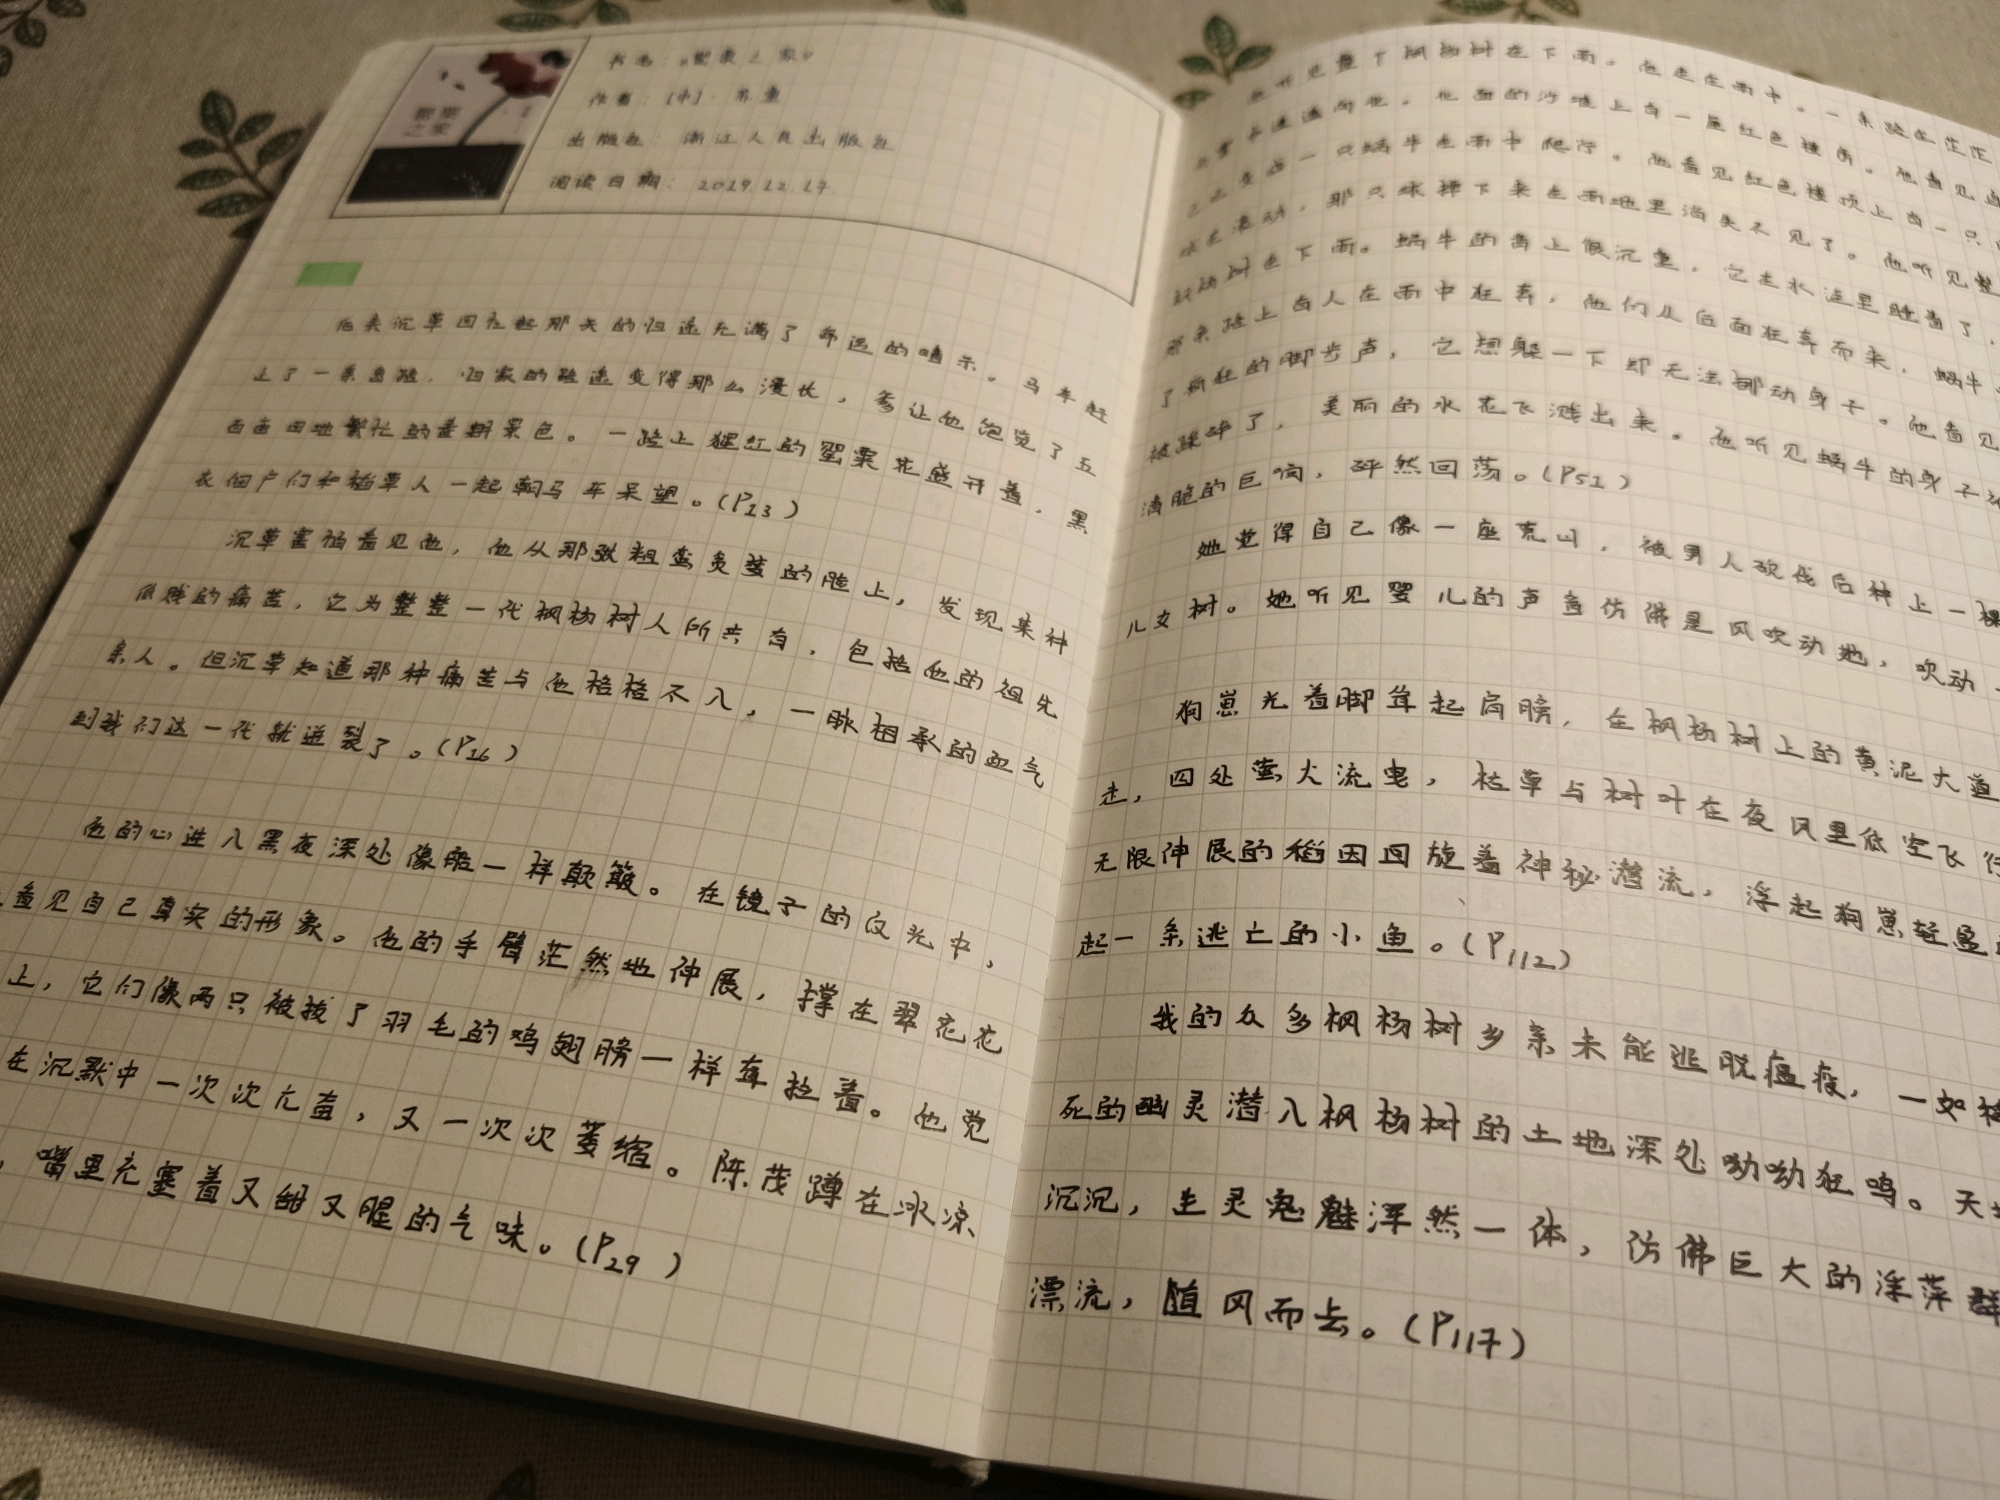 罂粟之家
书名：《罂粟之家》
作者：[中]·苏童
出版社：浙江人民出版社
阅读日期：2019.12.19
后来沉草回忆起那天的归途充满了命运的暗示。马车赶
上了一条岔路，归家的路途变得那么漫长，爹让他饱览了五
百亩田地繁忙的春耕景色。一路上猩红的罂粟花盛开着，黑
衣佃户们和稻草人一起朝马车呆望。(P13)
沉草害怕看见他，他从那张粗蛮贪婪的脸上，发现某种
低贱的痛苦，它为整整一代枫杨树人所共有，包括他的祖先
亲人。但沉草知道那种痛苦与他格格不入，一脉相承的血气
到我们这一代就迸裂了。(P16)
他的心进入黑夜深处像船一样颠簸。在镜子的反光中，
看见自己真实的形象。他的手臂茫然地伸展，撑在翠花花
上，它们像两只被拔了羽毛的鸡翅膀一样耷拉着。他觉
在沉默中一次次亢奋，又一次次萎缩。陈茂蹲在冰凉
，嘴里充塞着又甜又腥的气味。(P29)
他听见整个枫杨树在下雨。他走在雨中。一条路在茫茫
一座红色楼房。他看见自
己变占一只蜗牛在雨中爬行。他看见红色楼顶上有一只
球在滚动，那只球掉下来在雨地里消失不见了。他听见整
枫杨树在下雨。蜗牛的背上很沉重，它在水洼里睡着了，
那条路上有人在雨中狂奔，他们从后面狂奔而来，蜗牛
了疯狂的脚步声，它想躲一下却无法挪动身子。他看见
被踩碎了，美丽的水花飞溅出来。他听见蜗牛的身子
清脆的巨响，砰然回荡。(P51)
她觉得自己像一座荒山，被男人砍伐后种上一棵
儿女树。她听见婴儿的声音仿佛是风吹动她，吹动
狗崽光着脚耸起肩膀，在枫杨树上的黄泥大道
走，四处萤火流曳，枯草与树叶在夜风里低空飞行
无限伸展的稻田回旋着神秘潜流，浮起狗崽轻盈
起一条逃亡的小鱼。(P112)
我的众多枫杨树乡亲未能逃脱瘟疫，一如
死的幽灵潜入枫杨树的土地深处呦呦狂鸣。天地
沉沉，生灵鬼魅浑然一体，仿佛巨大的浮萍群
漂流，随风而去。(P117)